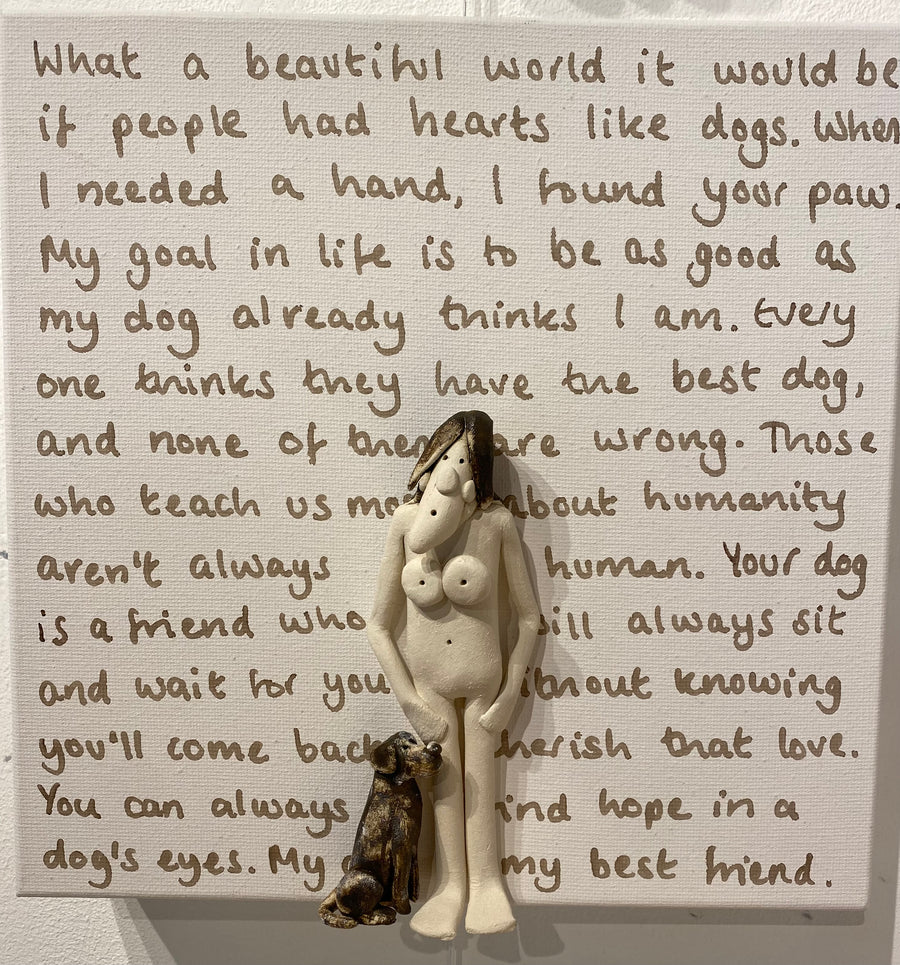 What a beautiful world it would be
if people had hearts like dogs. When
I needed a hand, I found your paw.
My goal in life is to be as good as
my dog already thinks I am. Every
one thinks they have the best dog,
and none of them are wrong. Those
who teach us about humanity
aren't always human. Your dog
is a friend who will always sit
and wait for you without knowing
you'll come back cherish that love.
You can always find hope in a
dog's eyes. My my best friend.